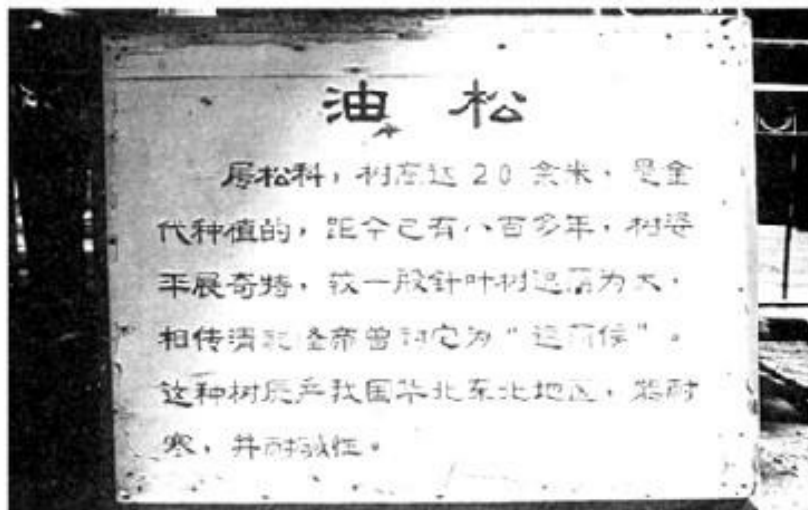 油 松
属松科，树高达20余米，是金
代种植的，距今已有八百多年，树姿
平展奇特，较一般针叶树遮荫为大，
相传清乾隆帝曾封它为“遮荫侯”。
这种树原产我国华北东北地区，能耐
寒，并耐碱性。